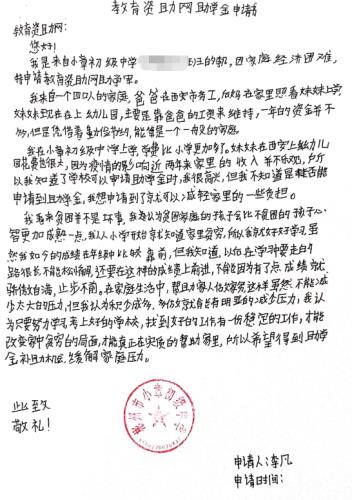 教育资助网助学金申请
教育资助网:
您好!
我是来自小章初级中学 班的 ,因家庭经济困难,
特申请教育资助网助学金。
我来自一个四口人的家庭,爸爸在西安市务工,
妹妹现在在上幼儿园,主要是靠爸爸的工资来维持,一年的资金并不
多,但
我在小章初级中学上学 学费比小学更加 了。妹妹在西安上幼儿
园花费也很大,因为疫情的影响 近两年来家里的收入并不 ,所
以我知道了学校可以申请助学金时,我很高兴,但我不知道是否能
申请到助学金,我想申请到了就可以减轻家里的一些负担。
我 来贫困并不是坏事,我身认为贫困家庭的孩子会比不困的孩子心
智更加成熟一点,我从小学开始就知道家里贫穷,所以我就好好学习,虽
然我如今的成绩在年级中比较靠前,但我知道,以后在学习中要走的
路很长不能松懈,还要在这种的成绩上前进,不能因为有了点成绩就
骄傲自满,止步不前。在家庭生活中,帮且力家人 家务这样虽然不能减
少太大的压力,但我认为积少成多, 家务就肯能有明显的减少压力,我认
为只要努力学习,考上好的学校,找到好的工作有一份稳定的工作,才能
改变家中贫穷的局面,才能真正在实质的帮助家里,所以希望得到助学
金补且力机应,缓解家庭压力。
此致
敬礼!
彬州市小章初级中学
申请人:李凡
申请日时间: